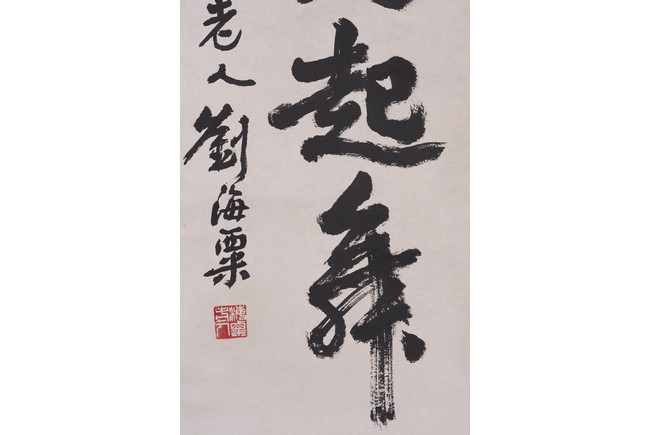 起舞
老人劉海粟